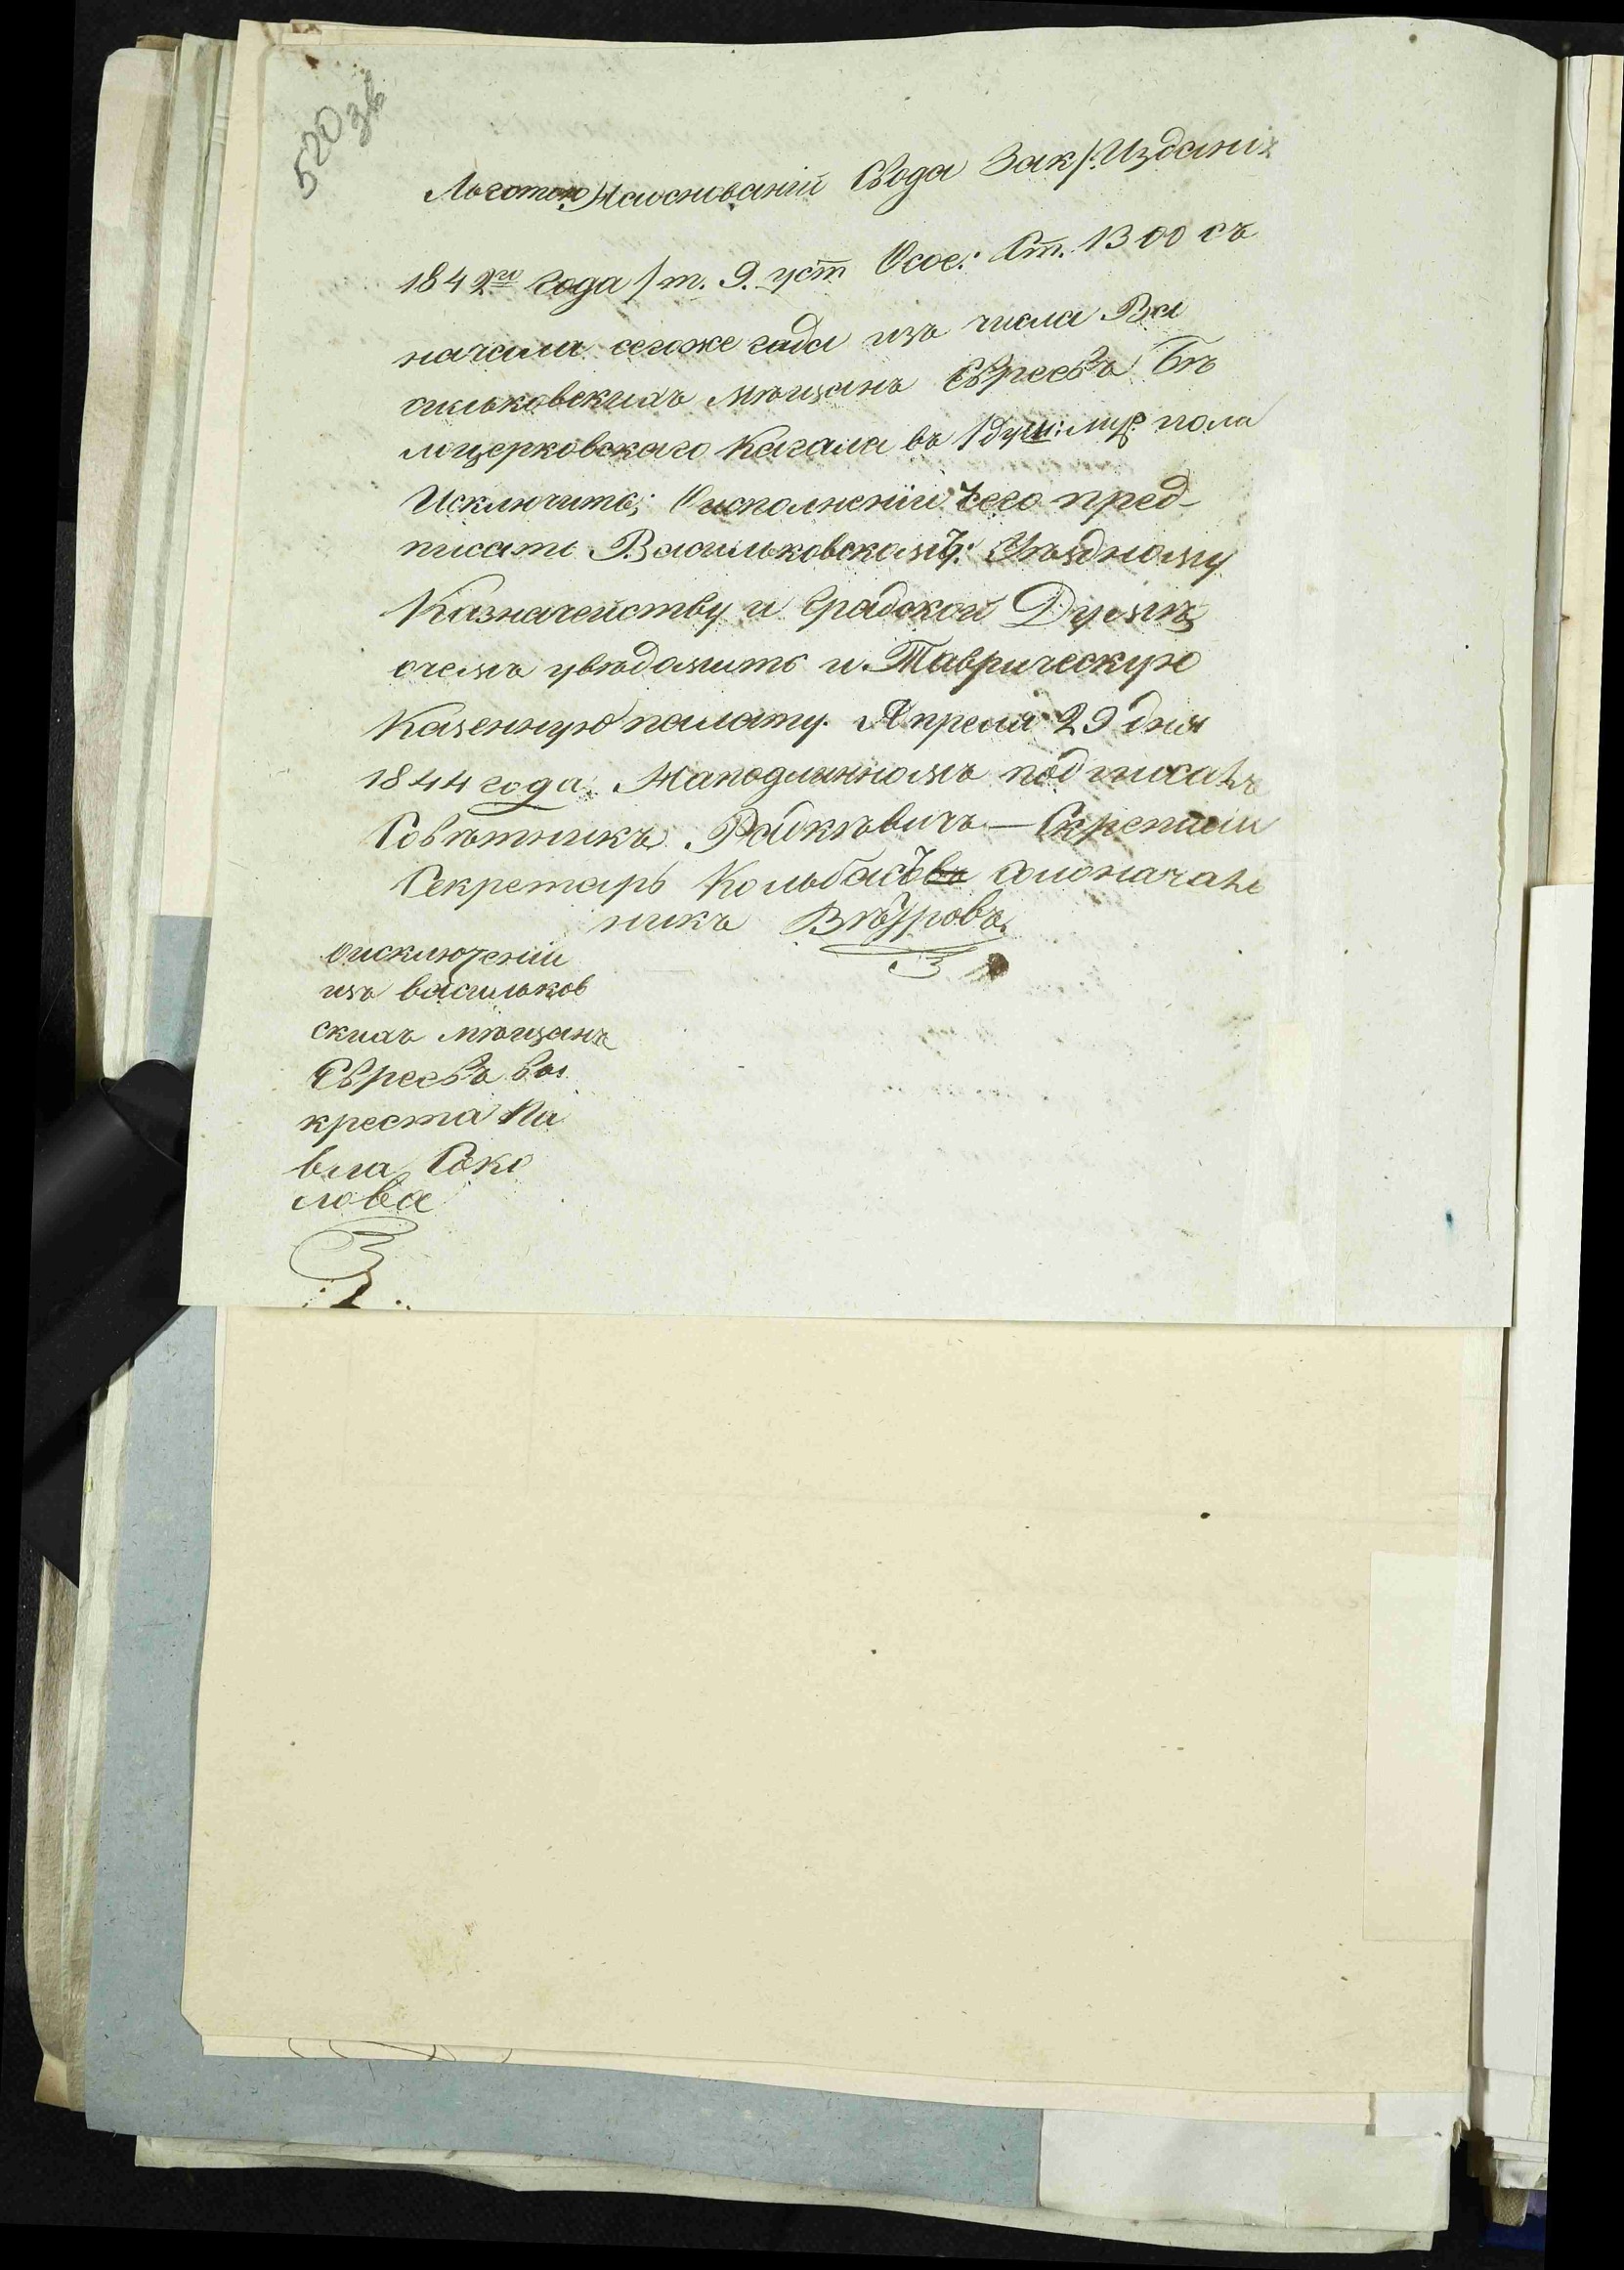 520 зв
Льготою) Наоснованіи Свода Зак/: Изданія
1842го года /т. 9. уст Осос: Ст. 1300 съ
начала сегоже года изъ числа Ва
сильковскихъ мѣщанъ Евреевъ Бѣ
лоцерковскаго Кагала въ 1 душ: муж: пола
Исключить; Оисполненіи чего пред-
писать Васильковскому: Уѣздному
Казначейству и Градской Думѣ
очемъ увѣдомить и Таврическую
Казенную палату. Апреля 29 дня
1844 года. Наподлинномъ подписалъ
Совѣтникъ Райкѣвичъ — Скрепили
Секретарь Столоначаль
никъ
оисключеніи
изъ васильков
скихъ мѣщанъ
Евреевъ вы
креста Па
вла Соко
лова